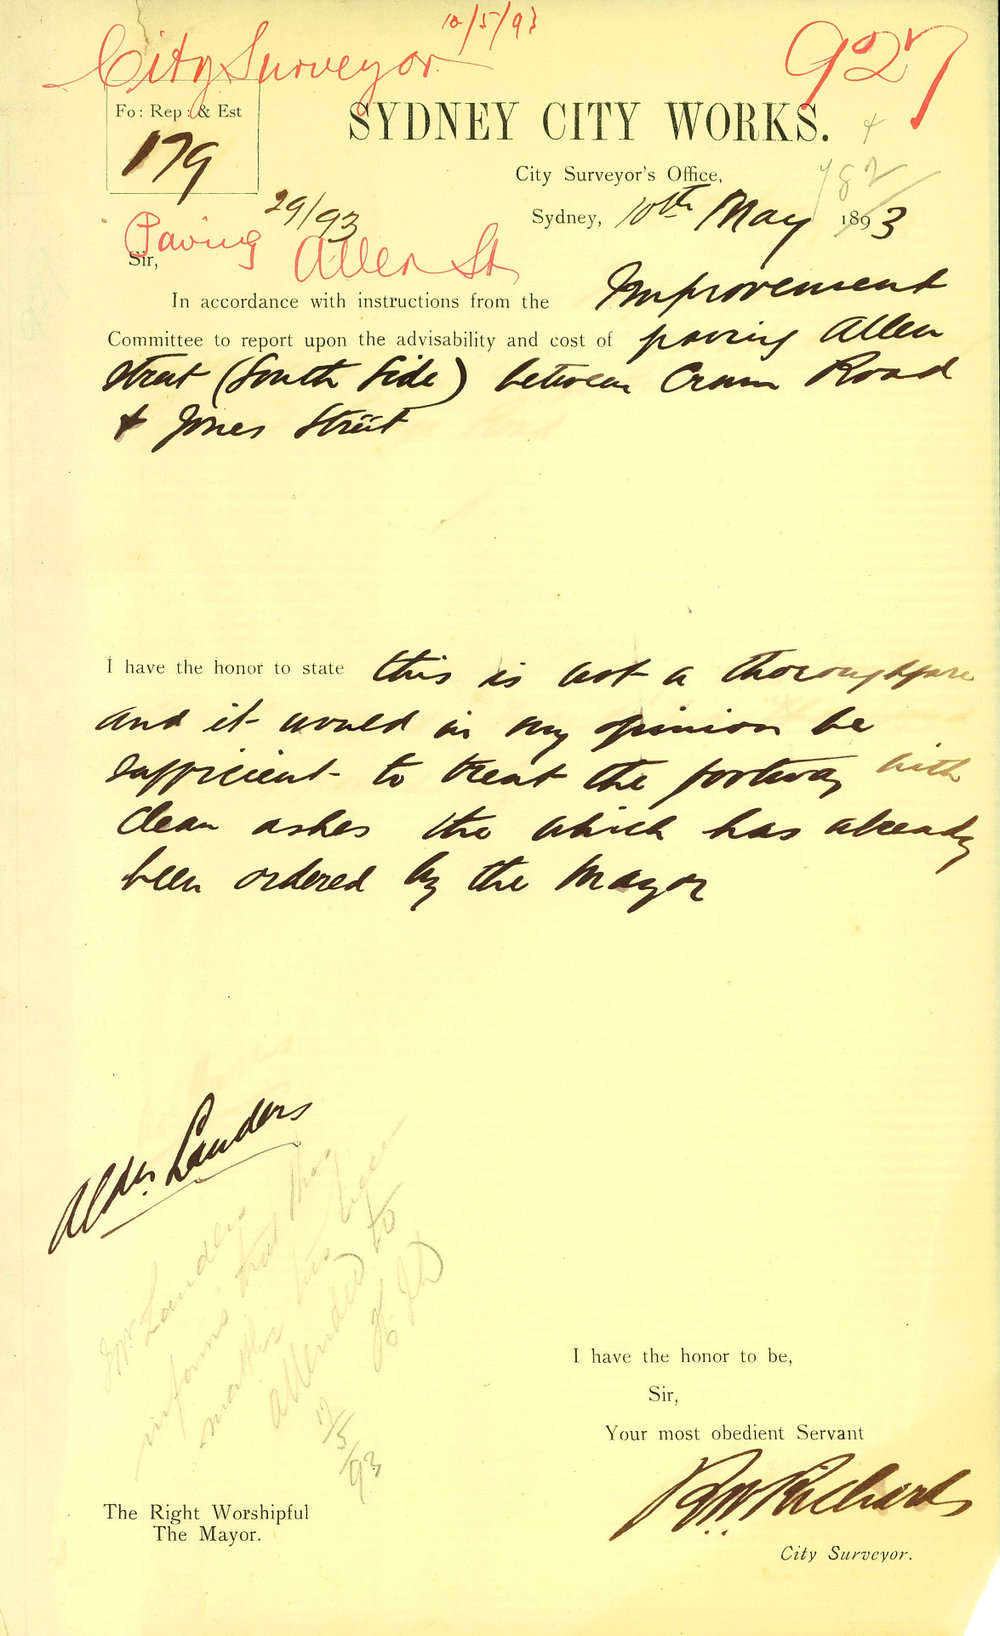 10/5/93
City Surveyor
927
Fo: Rep: & Est
179
SYDNEY CITY WORKS.
City Surveyor's Office,
782
29/93
Sydney, 10th May 1893
Paving Allen St
Sir,
In accordance with instructions from the Improvement
Committee to report upon the advisability and cost of paving Allen
Street (South Side) between Crown Road
& Jones Street
I have the honor to state this is not a thoroughfare
and it would in my opinion be
sufficient to treat the footway with
clean ashes the which has already
been ordered by the Mayor
Aldn. Landers
Mr Landers
informs that this
matter has been
attended to
17/5/93
I have the honor to be,
Sir,
Your most obedient Servant
RW Richards
City Surveyor.
The Right Worshipful
The Mayor.